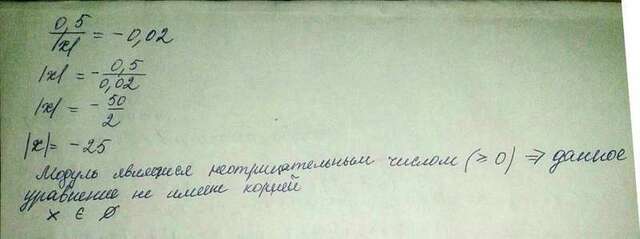 0,5/|x| = -0,02
|x| = -0,5/0,02
|x| = -50/2
|x|= -25
Модуль является неотрицательным числом (≥0) ⇒ данное
уравнение не имеет корней
x ∈ ∅